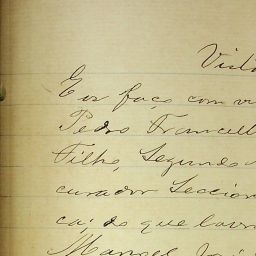 Vist
E os faço com vi
Pedro Francell
Filho, Segundo
curador Seccion
ca; do que lavr
Manoel José